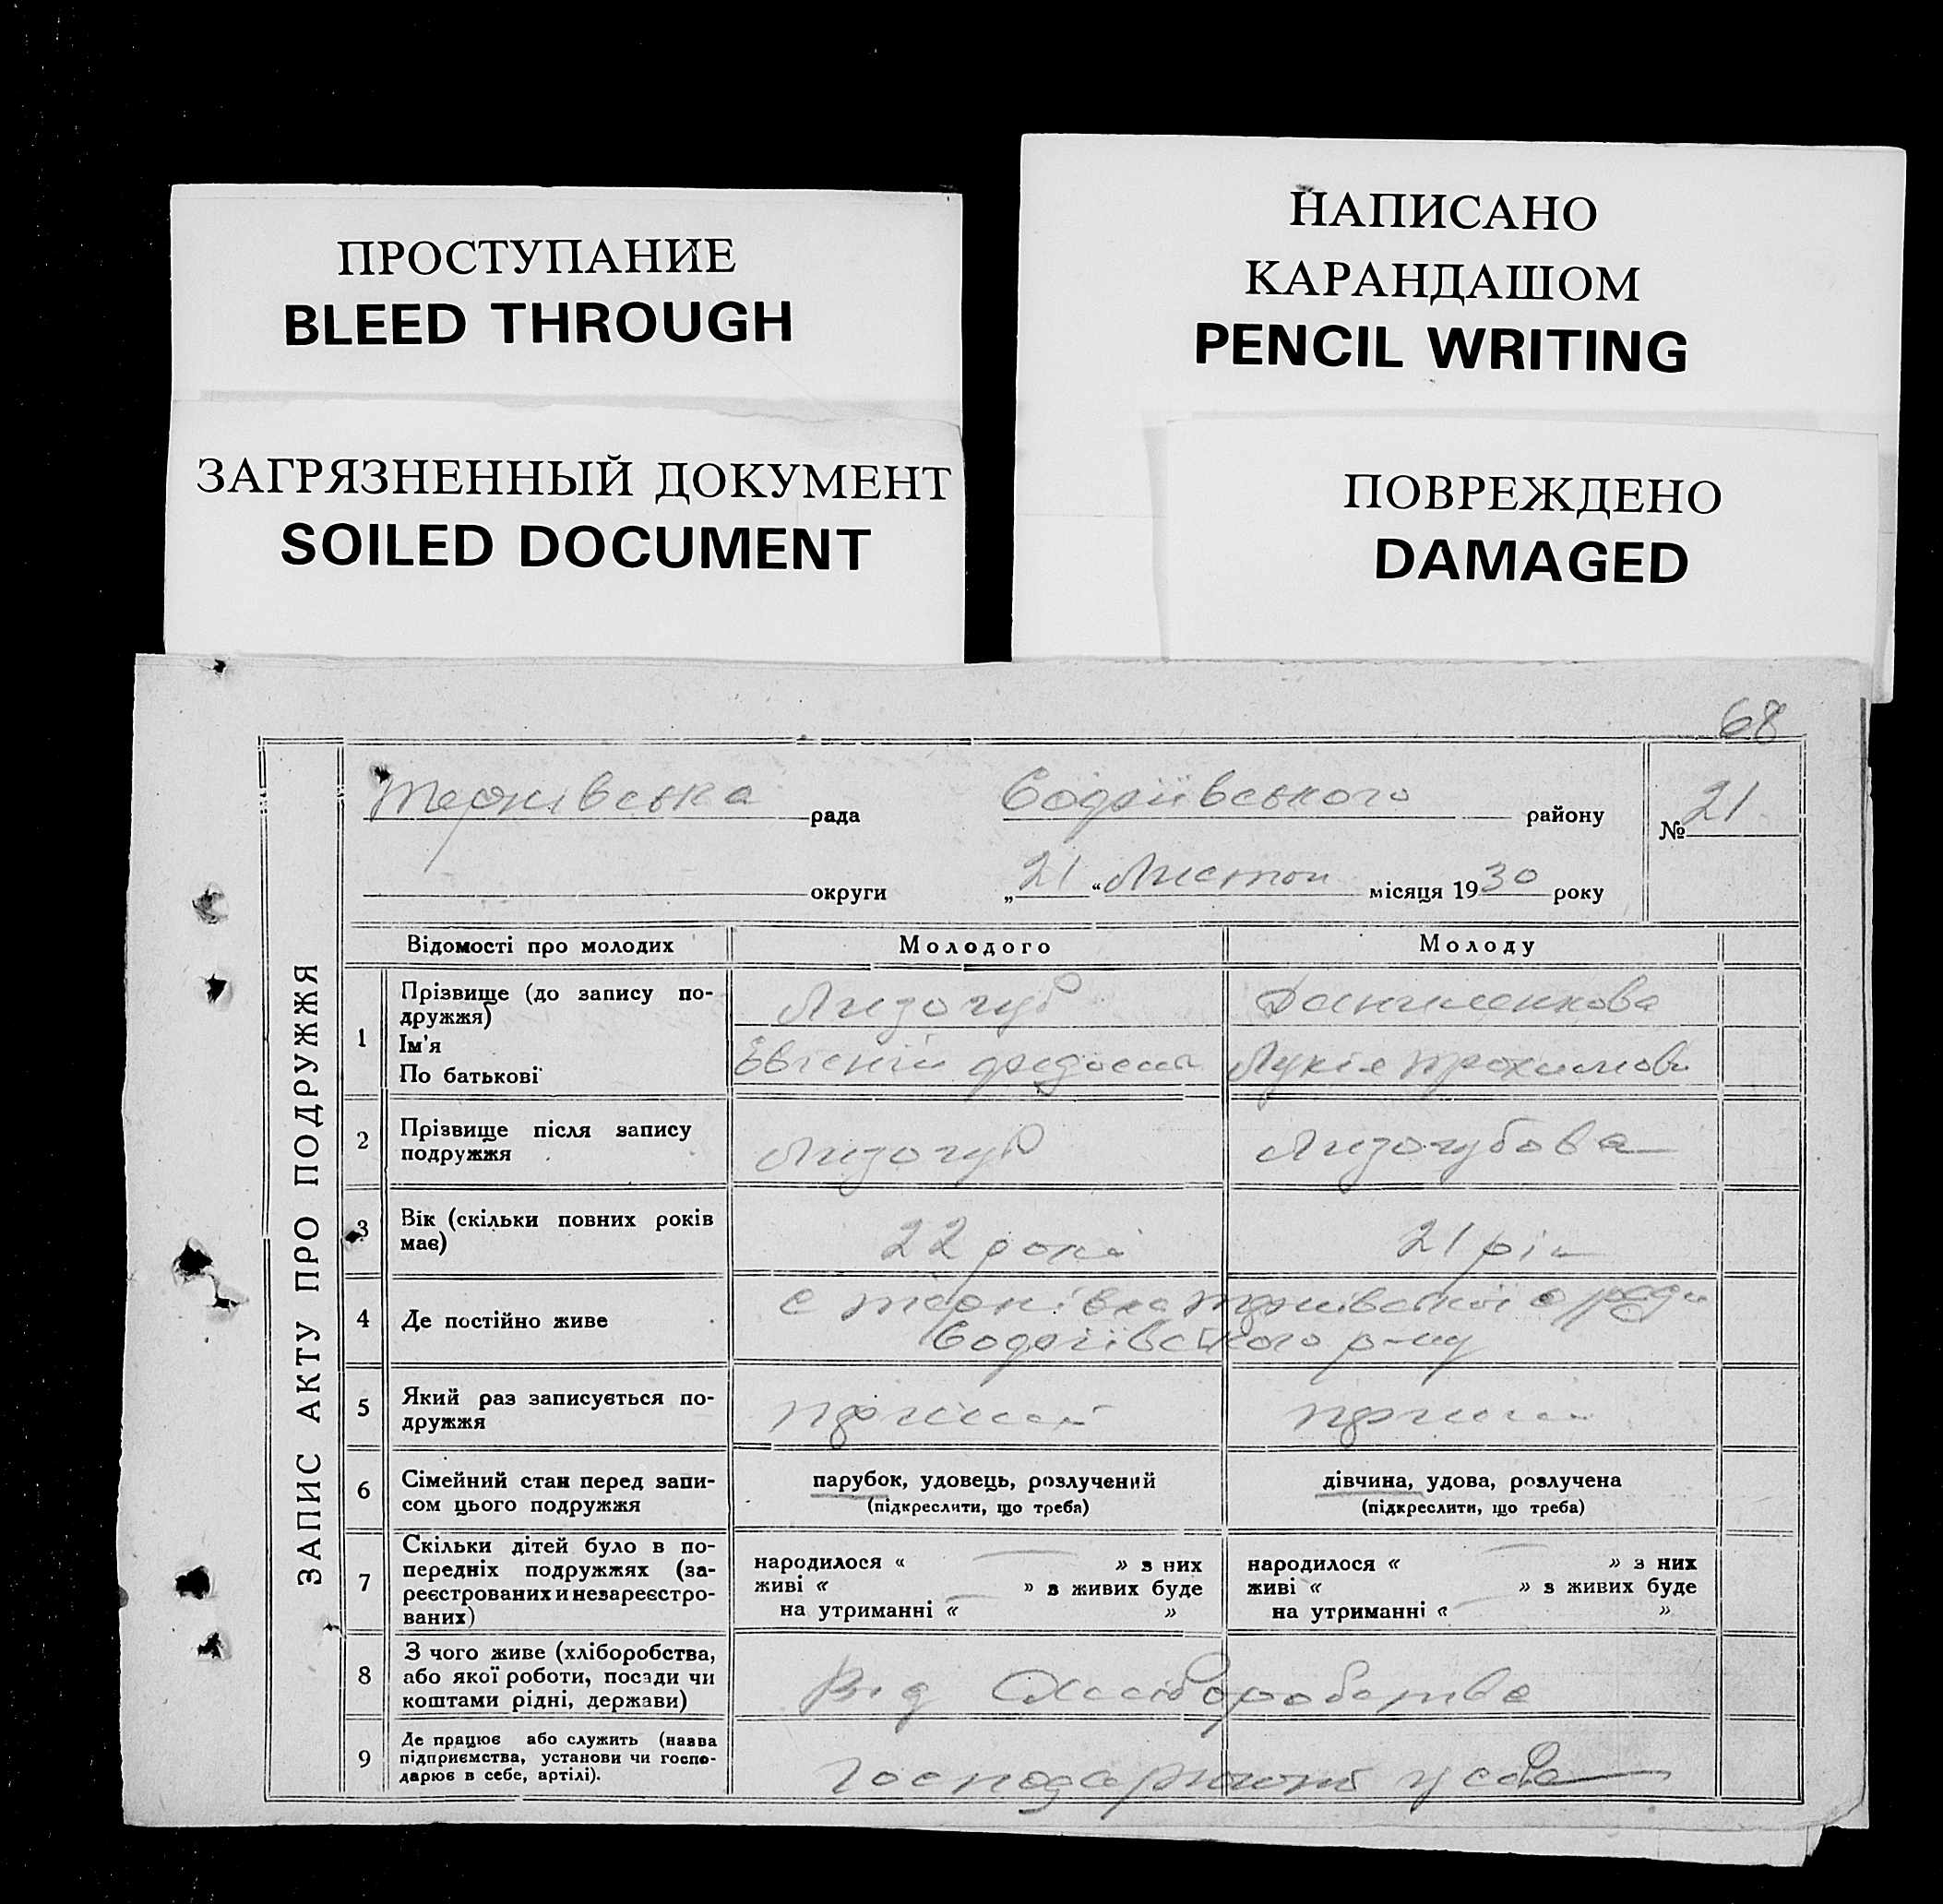 ПРОСТУПАНИЕ
BLEED THROUGH
ЗАГРЯЗНЕННЫЙ ДОКУМЕНТ
SOILED DOCUMENT
НАПИСАНО
КАРАНДАШОМ
PENCIL WRITING
ПОВРЕЖДЕНО
DAMAGED
68
ЗАПИС АКТУ ПРО ПОДРУЖЖЯ
Тернівська рада району
№ 21
округи „21“ Листоп місяця 1930 року
Відомості про молодих Молодого Молоду
1 Прізвище (до запису по-
дружжя) Лизогуб
Ім'я
По батькові
2 Прізвище після запису
подружжя Лизогуб Лизогубова
3 Вік (скільки повних років
має) 22 роки 21 рік
4 Де постійно живе с Тернівка Тернівської с ради
р-ну
5 Який раз записується по-
дружжя
6 Сімейний стан перед запи-
сом цього подружжя
парубок, удовець, розлучений
(підкреслити, що треба)
дівчина, удова, розлучена
(підкреслити, що треба)
7 Скільки дітей було в по-
передніх подружжях (за-
реєстрованих и незареєстро-
ваних)
народилося « » з них
живі « » з живих буде
на утриманні « »
народилося « » з них
живі « » з живих буде
на утриманні « »
8 З чого живе (хліборобства,
або якої роботи, посади чи
коштами рідні, держави)
Від Хліборобства
9 Де працює або служить (назва
підприємства, установи чи госпо-
дарює в себе, артілі).
у себе